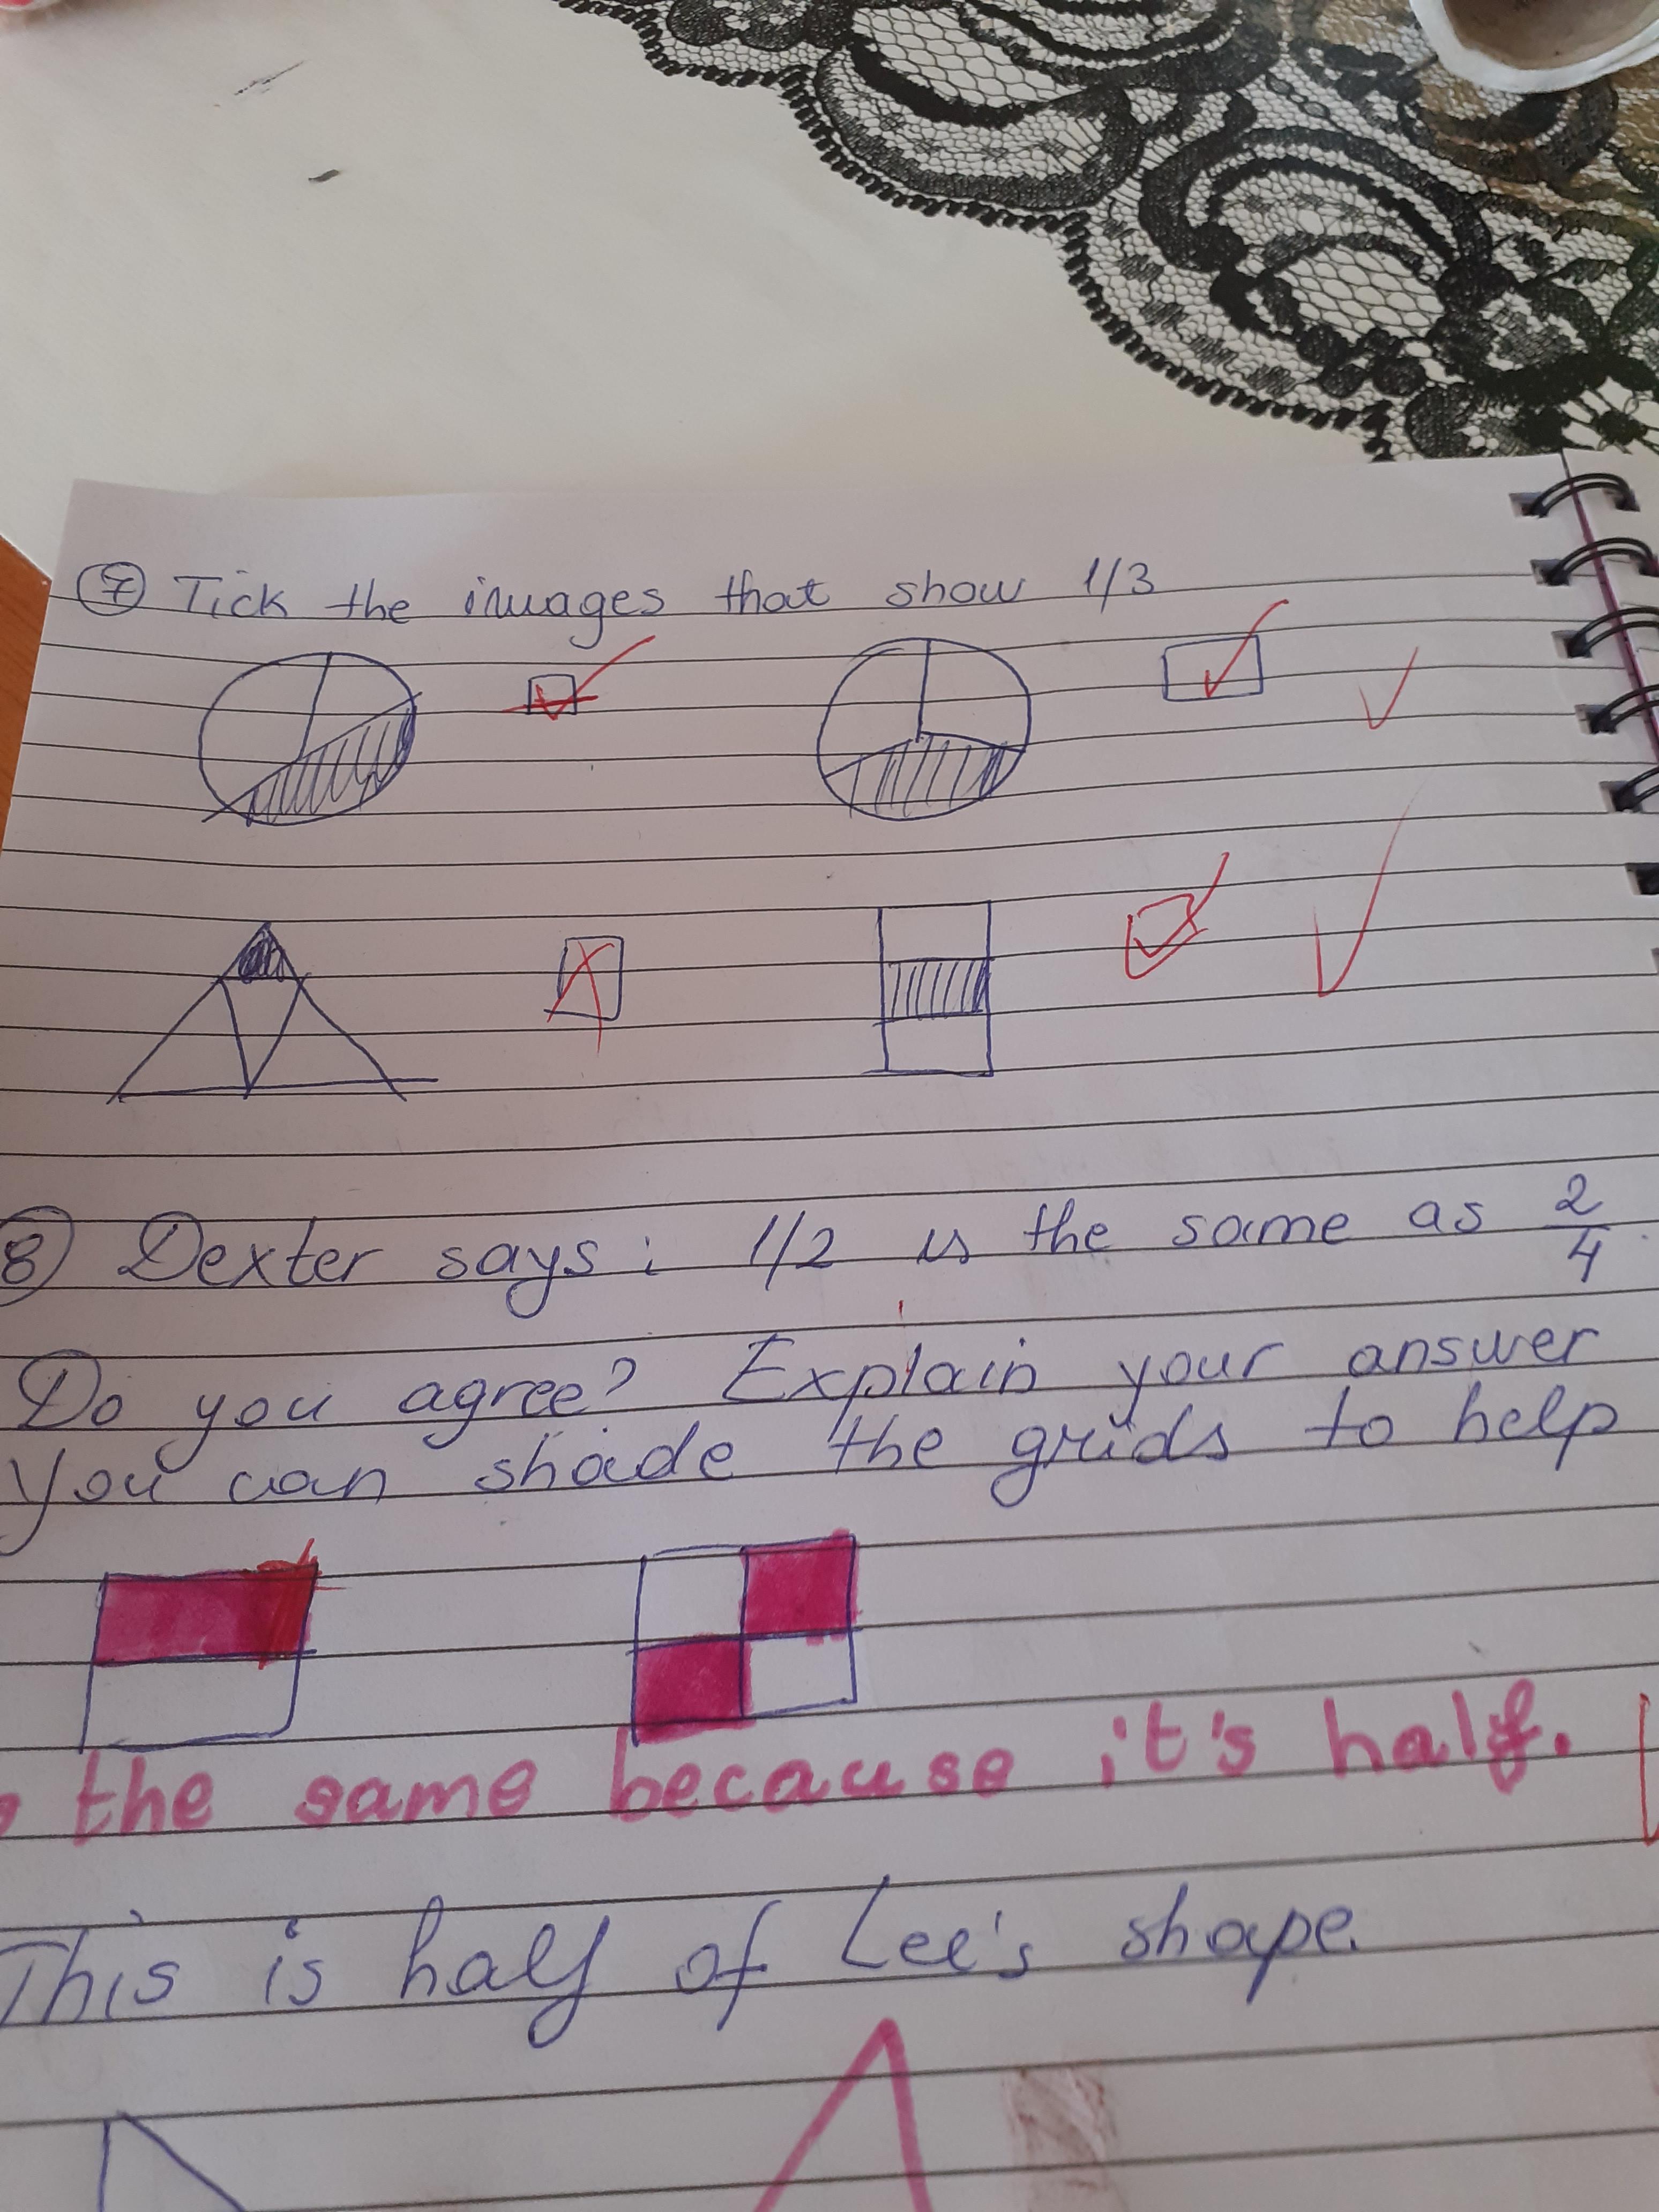 7 Tick the images that show 1/3
8 Dexter says: 1/2 is the same as 2/4.
Do you agree? Explain your answer
You can shade the grids to help
the same because it's half.
This is half of Lee's shape.